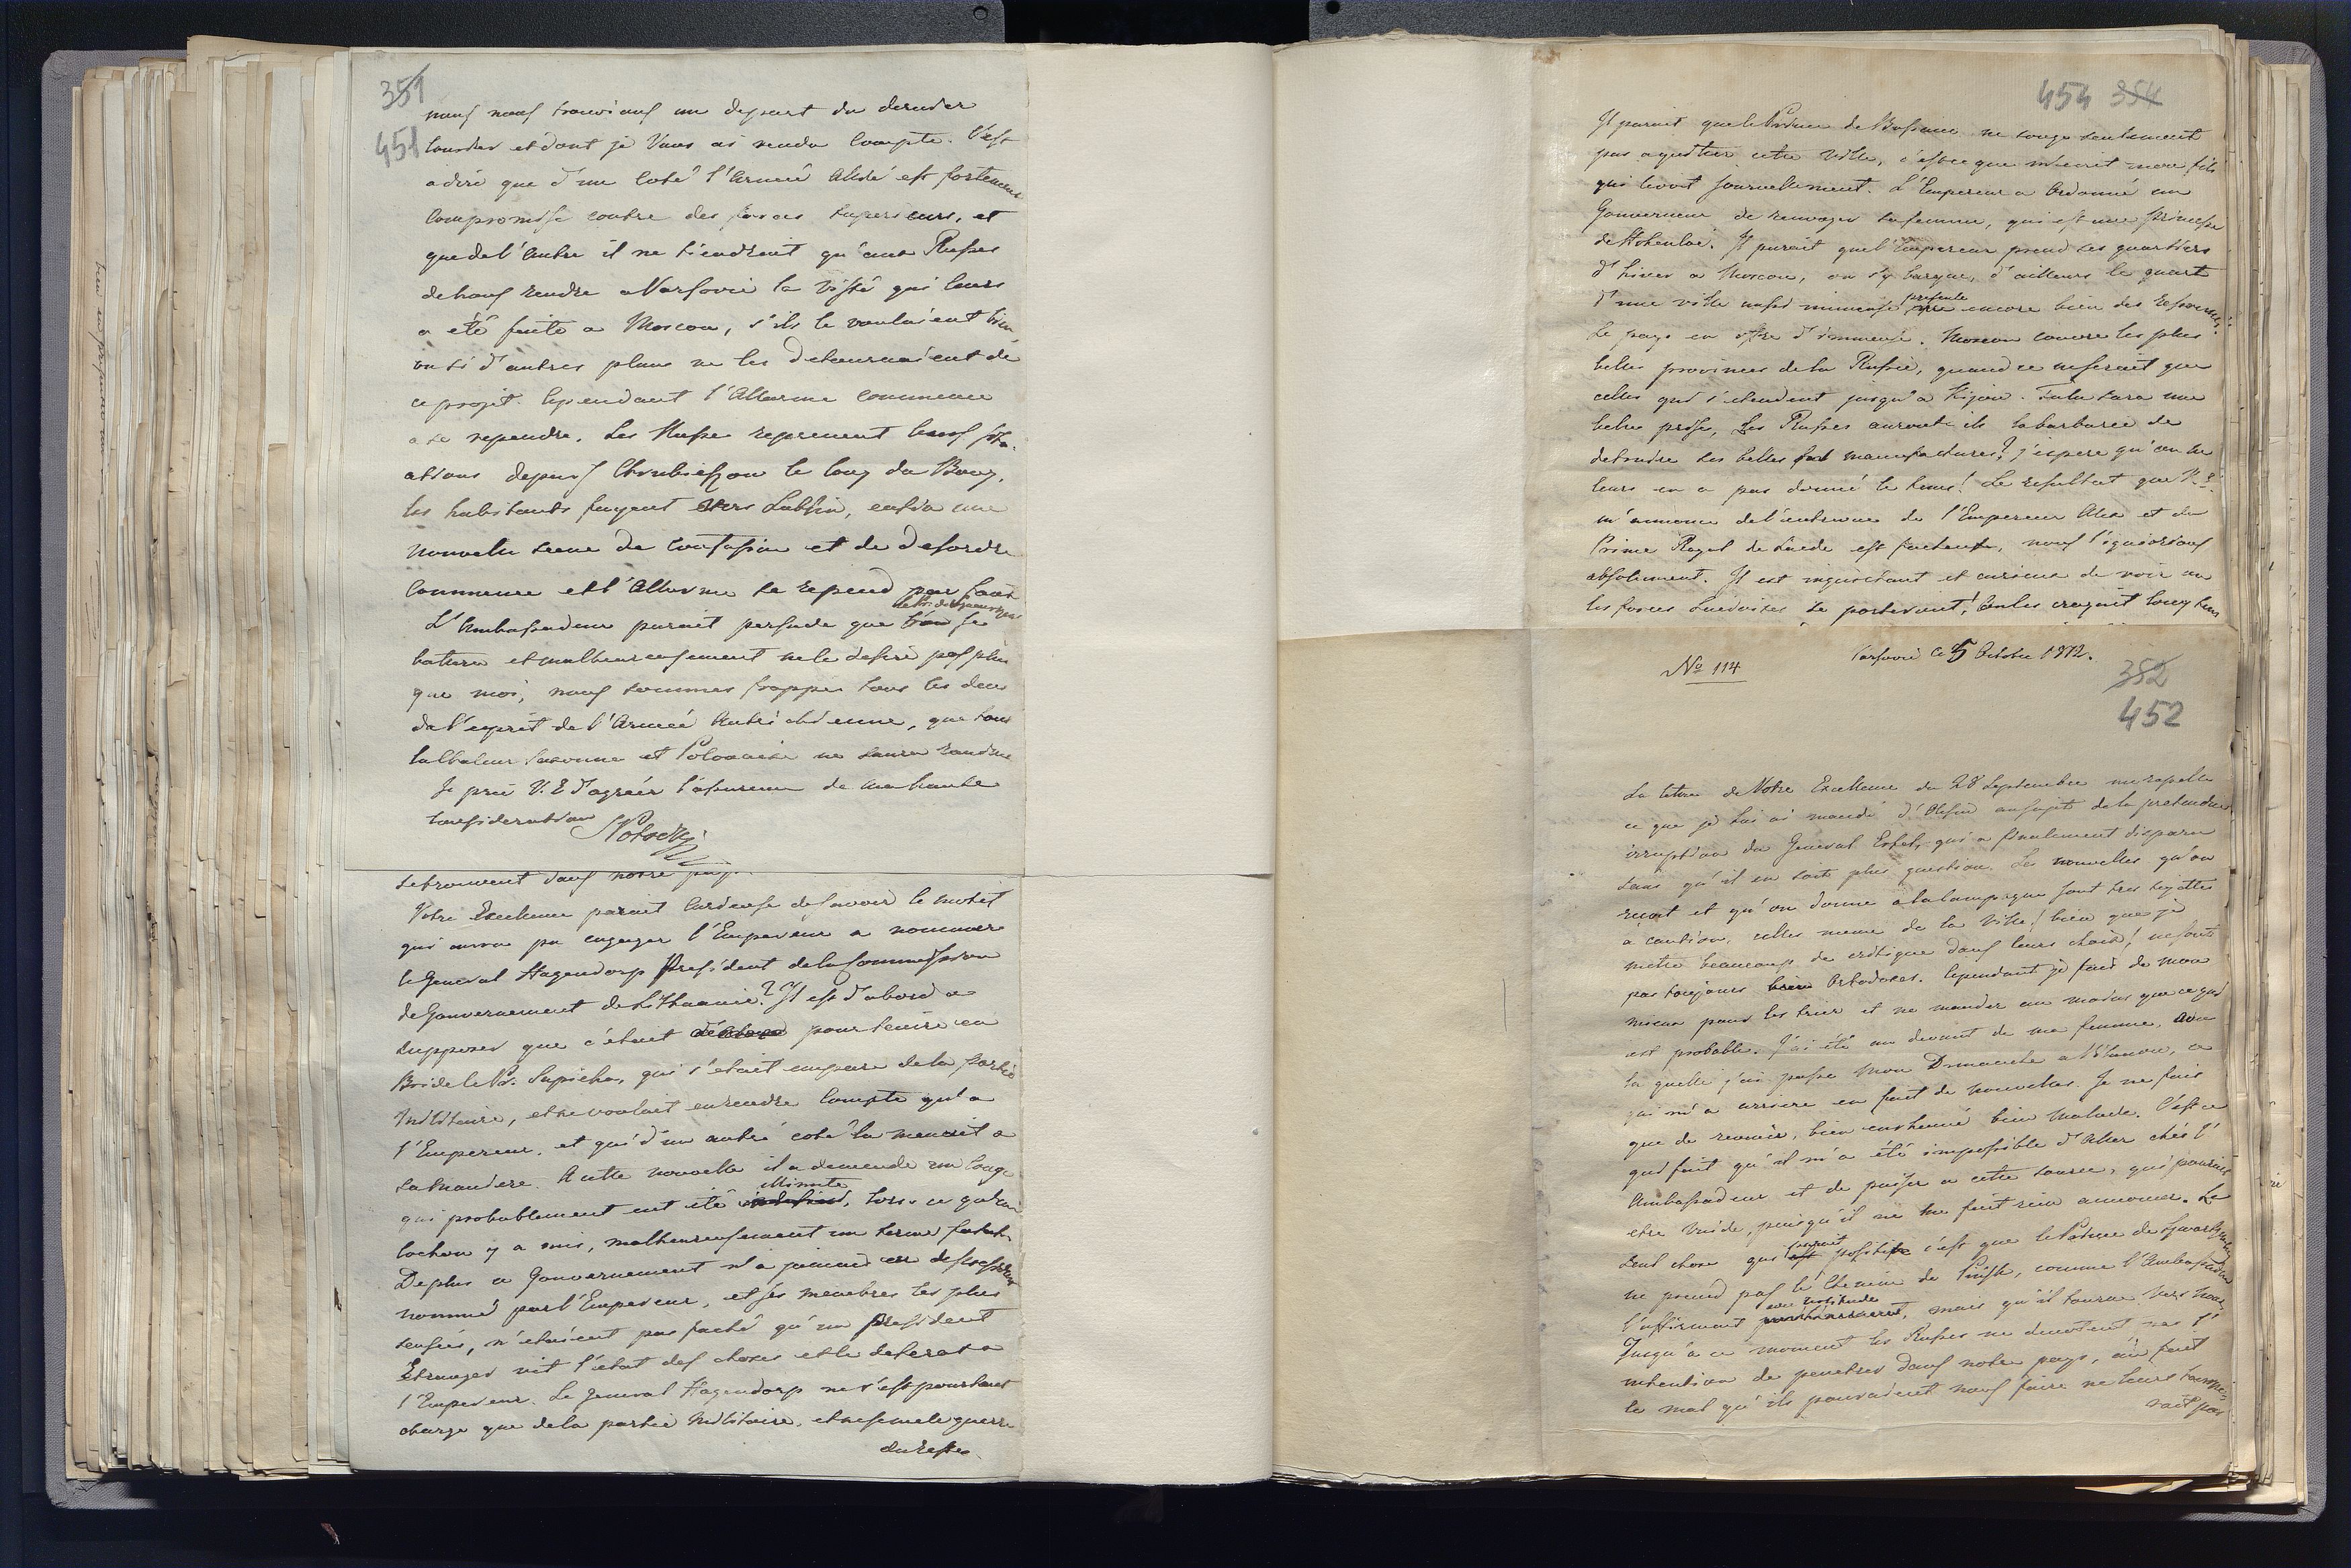 351
451
nous nous trouvions au depart du dernier
Courier et dont je Vous ai rendu Compte. C'est
adire que d'un Coté l'Armeé Alieé est fortement
Compromise contre des forces superieurs, et
que de l'autre il ne tiendroit qu'aux Russes
de nous rendre a Varsovie la visite qui leurs
a été faite a Moscou, s'ils le voulaient bien
ou si d'autres plans ne les detournaient de
ce projet. Cependant l'Allarme commence
a se rependre. Les Russe reprenent leurs sta-
ations depuis le long du Boug,
les habitants fuyent vers Lublin, enfin une
nouvelle scene de Confusion et de desordre
Commence et l'Allarme se repend par tout
L'Ambassadeur parait persuadé que le Pr. de Schwarzenberg se
battera et malheureusement ne le desire pas plus
que moi, nous sommes frappés tous les deux
de l'esprit de l'Armeé Autrichienne, que toute
la Valeur Saxonne et Polonaise ne saura rendre
Je prie V. E d'agréer l'assurence de ma haute
Consideration
Potocki
detrument dans notre pays.
Votre Excellence parait Curieuse de savoir le motif
qui aura pu engager l'Empereur a nommer
le General Hagendorp President de la Commission
de Gouvernement de Lithuanie? Il est d'abord a
supposer que c'etait pour tenire en
Bride le Pr. Sapieha, qui s'etait emparé de la partie
Militaire, et ne voulait en rendre Compte qu'a
l'Empereur, et qui d'un autre coté la menait a
sa maniere. A cette nouvelle il a demendé un Congé
qui probablement eut été illimité, lors ce qu'un
Cochon y a mis, malheureusement un terme fatal.
De plus ce Gouvernement n'a jamais eu de President
nommé par l'Empereur, et ses membres les plus
sensés, n'etaient pas faché qu'un President
Etranger vit l'etat des choses et le deferat a
l'Empereur. Le General Hagendorp ne s'est pourtant
chargé que de la partie Militaire, et ne se mele guerre
du reste.
454 354
Il parait que le Prince de Bassano ne songe seulement
pas a quitter cette Ville, c'est ce que m'ecrit mon fils
qui le voit journellement. L'Empereur a Ordonné au
Gouverneur de renvoyer sa femme, qui est une Princesse
de Hohenloe. Il parait que l'Empereur prend ses quartiers
d'hiver a Moscou, on s'y baraque, d'ailleurs le quart
d'une ville aussi immense presente encore bien des ressources.
Le pays en offre d'immense. Moscou couvre les plus
belles provinces de la Russie, quand ce ne serait que
celles qui s'etendent jusqu'a Kijow. Tula sera une
belle prise, Les Russes auront ils la barbarie de
detruire ses belles manufactures? j'espere qu'on ne
leurs en a pas donné le tems! Le resultat que V. E.
m'annonce de l'entrevue de l'Empereur Alex et du
Prince Royal de Suede est facheux, nous l'ignorions
absolument. Il est inquietant et curieux de voir ou
les forces Suedoises se porteraient! On les craignit long tems
Nº 114
Varsovie ce 5 Octobre 1812.
352
452
La lettre de Votre Excellence du 28 Septembre me rapelle
ce que je lui ai mandé d'Olesin au sujet de la pretendue
irruption du General Ertel, qui a finalement disparu
sans qu'il en soit plus question. Les nouvelles qu'on
reçoit et qu'on donne a la Campagne sont tres sujettes
a caution, celles meme de la Ville! bien que je
mette beaucoup de critique dans leurs choix! ne sont
pas toujours bien Ortodoxes. Cependant je fais de mon
mieux pour les trier et ne mander au moins que ce qui
est probable. J'ai été au devant de ma femme, avec
la quelle j'ai passé mon Dimanche a Vilanow, ce
qui m'a arrieré en fait de nouvelles. Je ne fais
que de revenir, bien enrhumé bien malade. C'est ce
qui fait qu'il m'a été impossible d'aller chés l'
Ambassadeur et de puiser a cette source, qui pourrait
etre Vuide, puisqu'il ne me fait rien annoncer. La
seul chose qui serait positive c'est que le Prince de Schwarzenberg
ne prend pas le Chemin de Pinsk, comme l'Ambassadeur
l'affirmait avec certitude, mais qu'il tourne vers nous
Jusqu'a ce moment les Russes ne denotent pas l'
intention de penetrer dans notre pays, au fait
le mal qu'ils pouraient nous faire ne leurs tourne-
rait pas